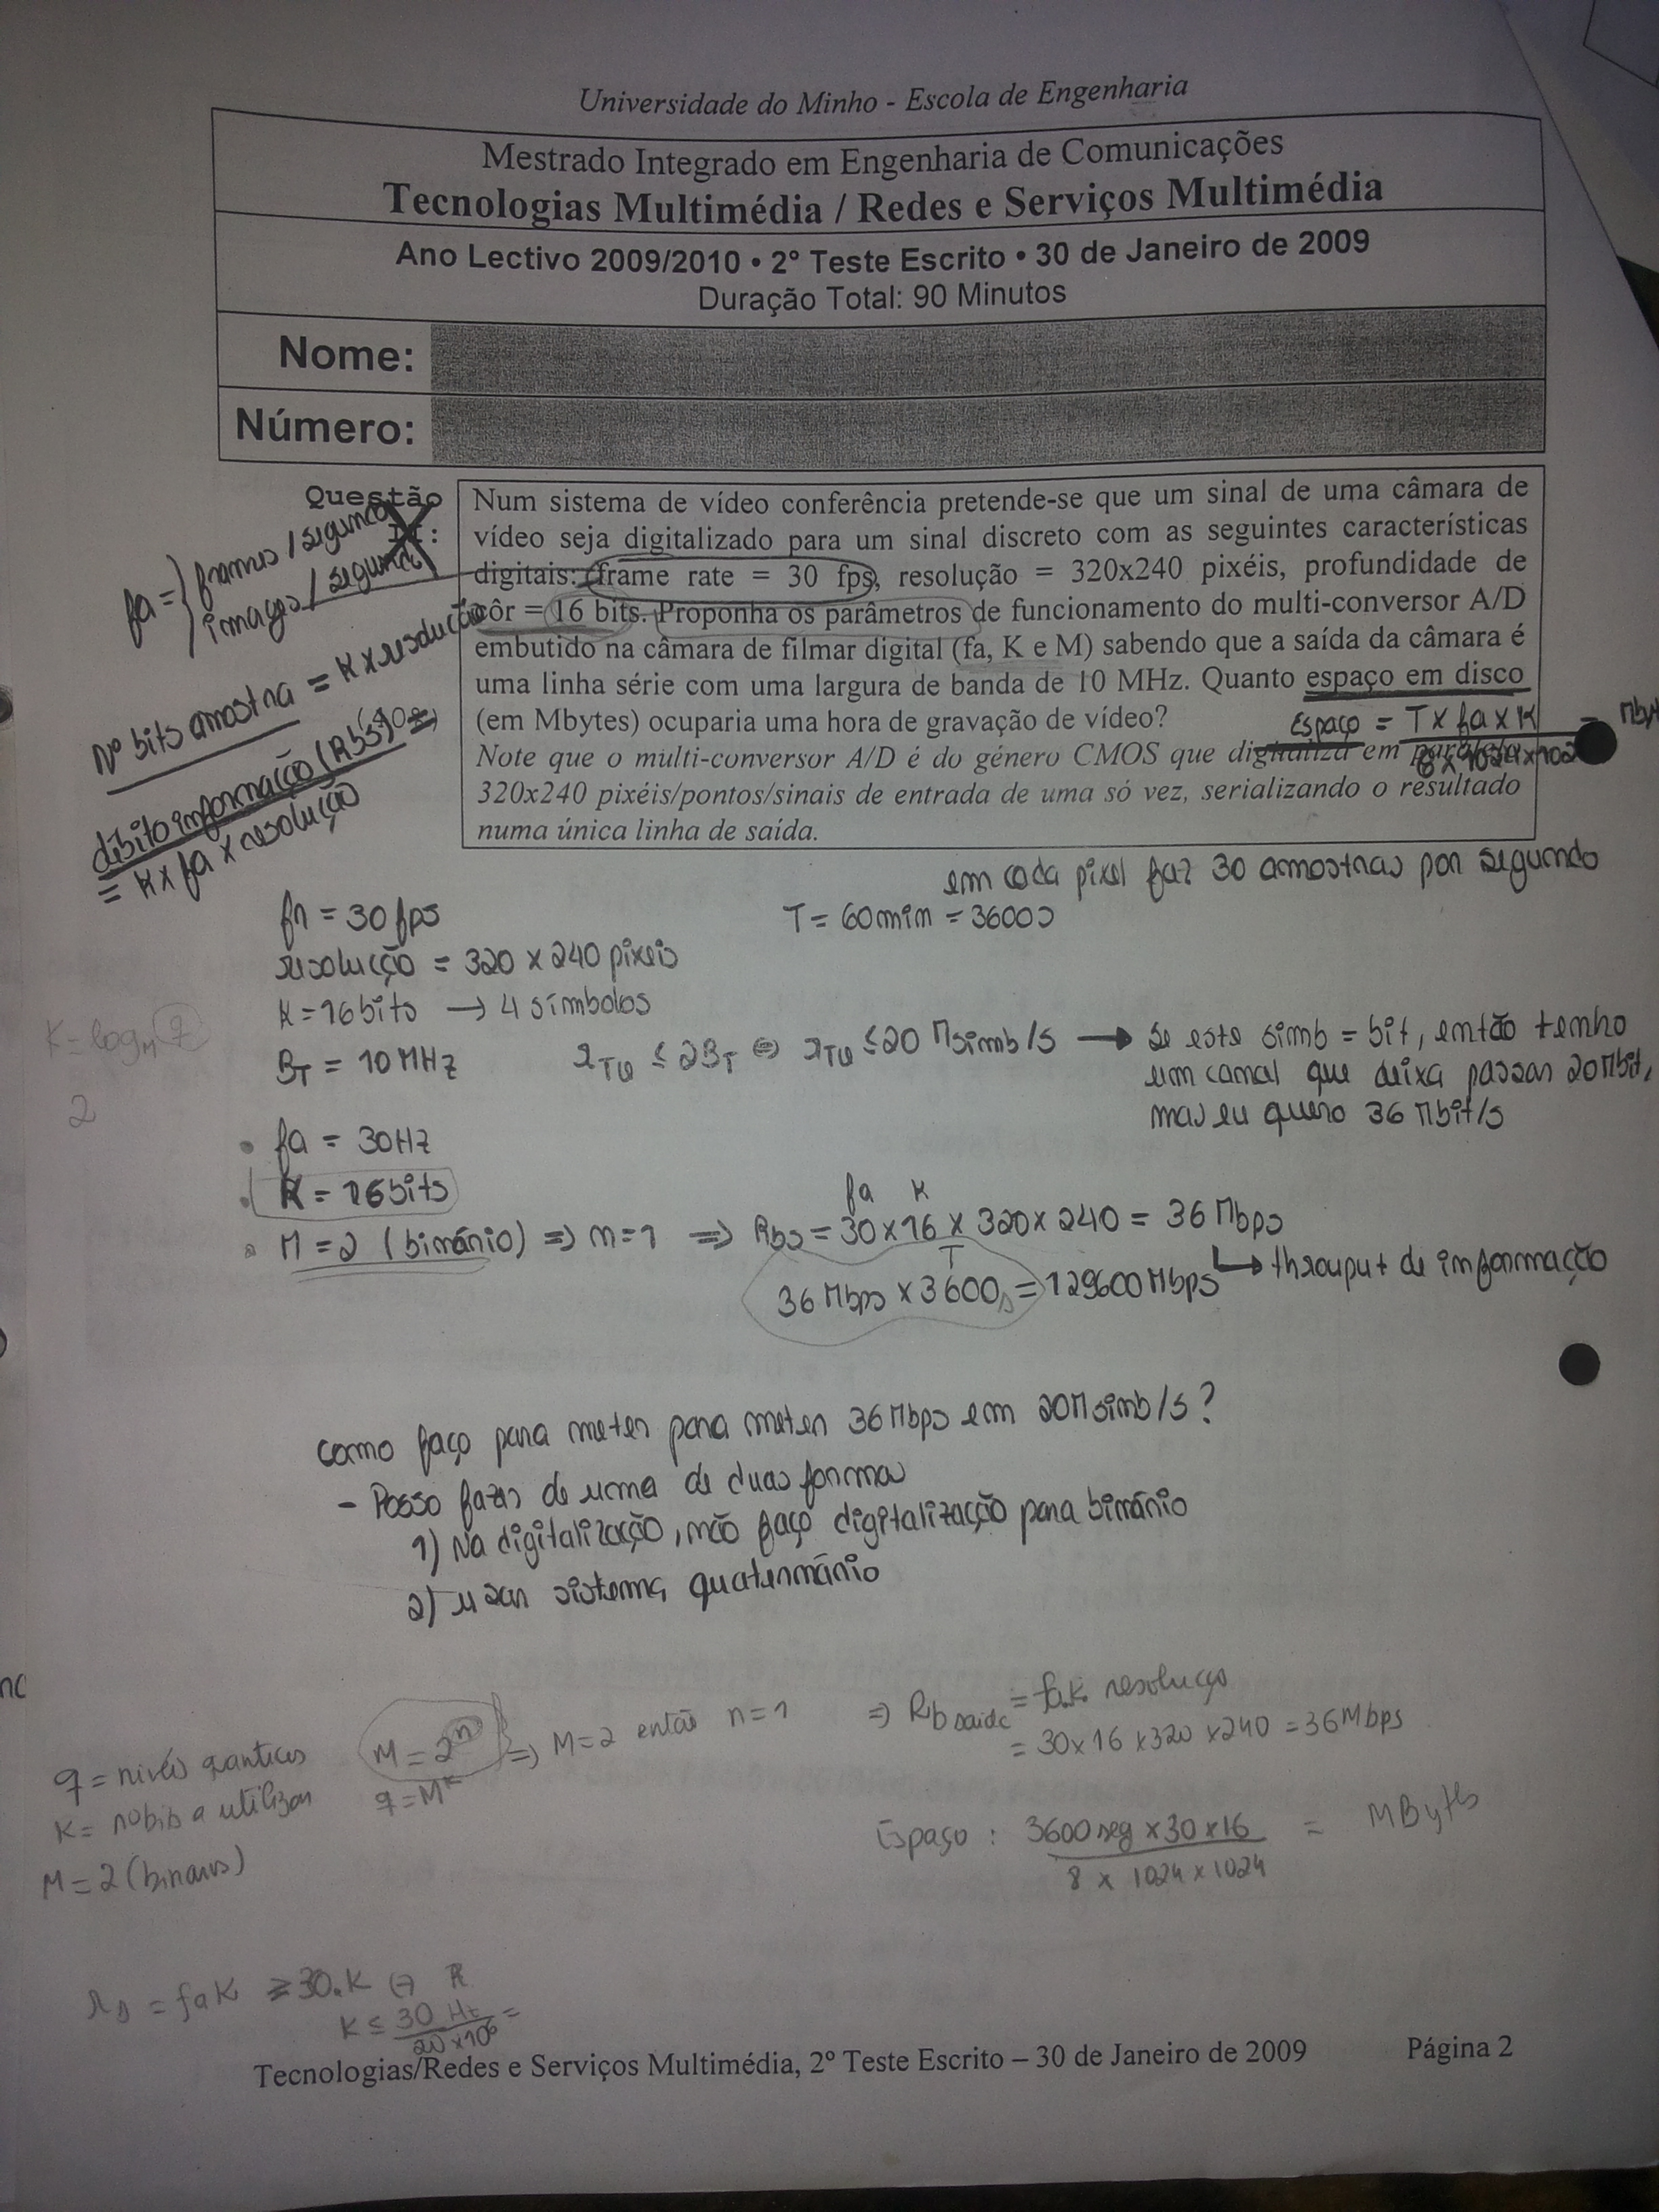 Universidade do Minho - Escola de Engenharia
Mestrado Integrado em Engenharia de Comunicações
Tecnologias Multimédia / Redes e Serviços Multimédia
Ano Lectivo 2009/2010 • 2º Teste Escrito • 30 de Janeiro de 2009
Duração Total: 90 Minutos
Nome:
Número:
Questão
Num sistema de vídeo conferência pretende-se que um sinal de uma câmara de
vídeo seja digitalizado para um sinal discreto com as seguintes características
digitais: frame rate = 30 fps, resolução = 320x240 pixéis, profundidade de
côr = 16 bits. Proponha os parâmetros de funcionamento do multi-conversor A/D
embutido na câmara de filmar digital (fa, K e M) sabendo que a saída da câmara é
uma linha série com uma largura de banda de 10 MHz. Quanto espaço em disco
(em Mbytes) ocuparia uma hora de gravação de vídeo?
Note que o multi-conversor A/D é do género CMOS que digitaliza em paralelo
320x240 pixéis/pontos/sinais de entrada de uma só vez, serializando o resultado
numa única linha de saída.
fa = } frames / segundo
imagens / segundo
Nº bits amostra = K x resolução
débito informação (Rbs)
= K x fa x resolução
Espaço = T x fa x K
8 x 1024 x 102
em cada pixel faz 30 amostras por segundo
fr = 30 fps
T = 60 min = 3600s
resolução = 320 x 240 pixeis
K = 16 bits → 4 símbolos
K = log_M q
BT = 10 MHz
≤ 2BT ⇔ ≤ 20 Msimb/s → se este simb = bit, então tenho
um canal que deixa passar 20Mbit,
mas eu quero 36 Mbit/s
2
• fa = 30Hz
• K = 16bits
fa K
• M = 2 (binário) ⇒ n=1 ⇒ Rbs = 30 x 16 x 320 x 240 = 36 Mbps
T
36 Mbps x 3600s = 129600 Mbps
→ throuput de informação
como faço para meter para meter 36 Mbps em 20 Msimb/s?
- Posso fazer de uma de duas formas
1) Na digitalização, não faço digitalização para binário
2) usar sistema quaternário
q = niveis quanticos
M = 2^n } ⇒ M = 2 então n = 1
⇒ Rb saida = fa.K. resoluçao
= 30 x 16 x 320 x 240 = 36 Mbps
K = nº bits a utilizar
q = M^K
M = 2 (binario)
Espaço : 3600 seg x 30 x 16 = MBytes
8 x 1024 x 1024
rs = fa K ≥ 30.K ⇔ R
K ≤ 30 Hz =
20 x 10^6
Tecnologias/Redes e Serviços Multimédia, 2º Teste Escrito – 30 de Janeiro de 2009 Página 2